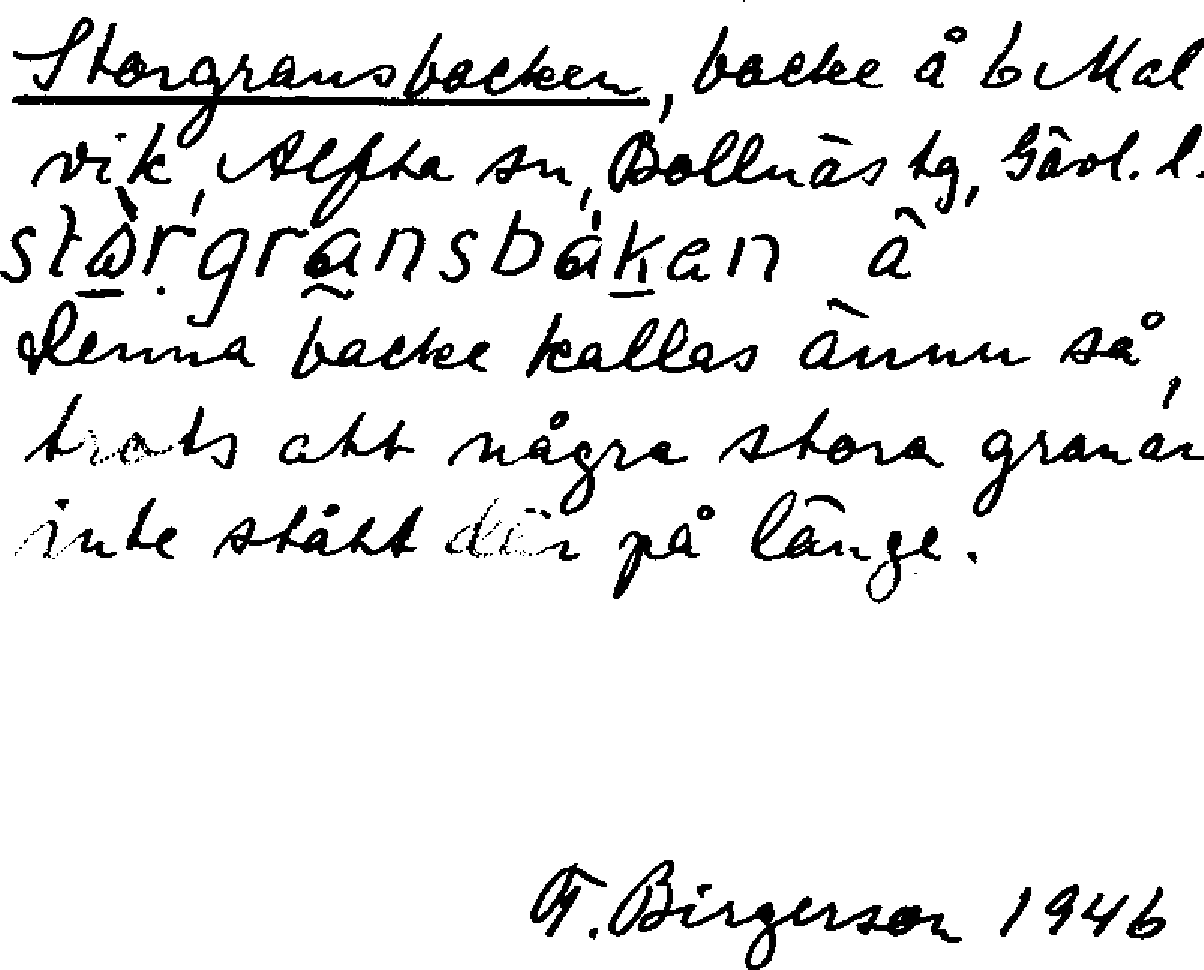 Storgransbacken, backe å b Mal
vik, Alfta sn, Bollnäs tg, Gävl. l.
stòr̀gransbákan â
Denna backe kallas ännu så,
trots att några stora granar
inte stått där på länge.
F. Birgerson 1946